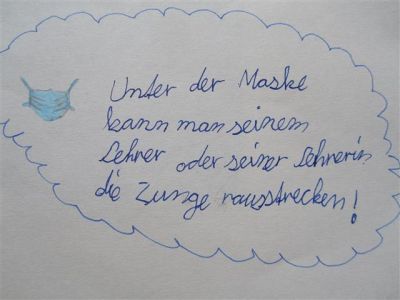 Unter der Maske
kann man seinem
Lehrer oder seiner Lehrerin
die Zunge rausstrecken!